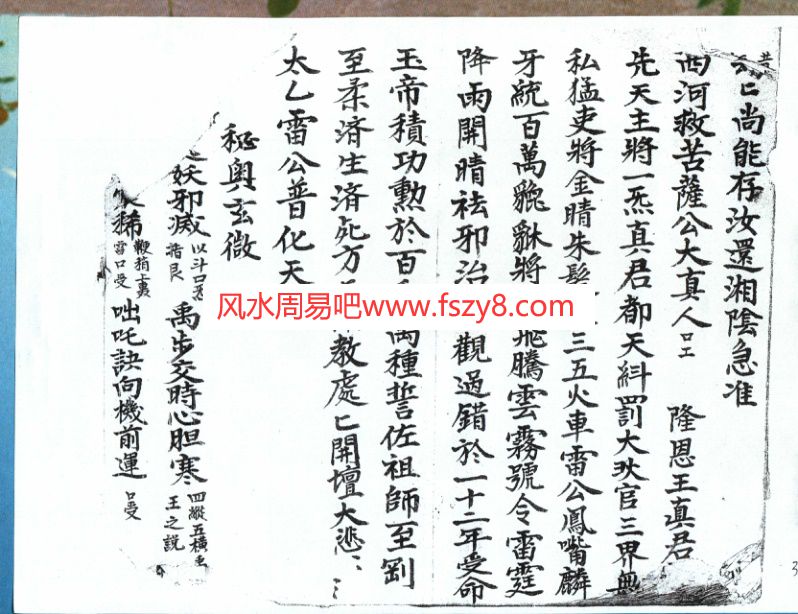 匕尚能存汝還湘陰急准
西河救苦薩公大真人 口工 隆恩王真君
先天主將一炁真君都天糾罰大灵官三界無
私猛吏將金睛朱髮三五火車雷公鳳嘴麟
牙統百萬貔貅將飛騰雲霧號令雷霆
降雨開晴祛邪治觀過錯於一十二年受命
玉帝積功勲於百萬種誓佐祖師至剛
至柔済生済死方教處匕開壇大悲
太乙雷公普化天
秘奥玄微
妖邪滅 禹步交時心胆寒 四縱五横 王之説
稀 雷口受 咄吒訣向機前運 口受
风水周易吧 www.fszy8.com
3